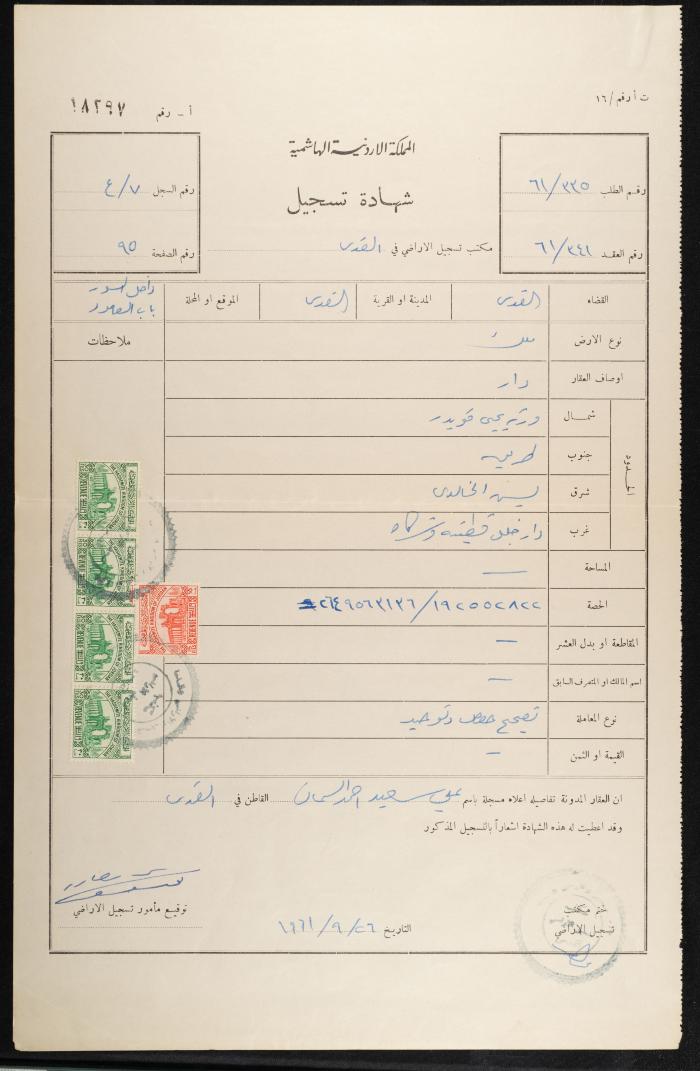 ت أ رقم /١٦
أ - رقم ١٨٢٩٧
المملكة الاردنية الهاشمية
شهادة تسجيل
مكتب تسجيل الاراضي في القدس
رقم الطلب ٦١/٣٣٥
رقم العقد ٦١/٣٤١
رقم السجل ٤/٧
رقم الصفحة ٩٥
القضاء القدس المدينة او القرية القدس الموقع او المحلة داخل السور
باب العامود
نوع الارض ملك ملاحظات
اوصاف العقار دار
الحدود
شمال ورثة يحيى قويدر
جنوب طريق
شرق الخالدي
غرب دار خليل وشركاه
المساحة —
الحصة ١٩٢٥٥٢٨٢٢/٢٦٤٩٥٦٣١٣٦
المقاطعة او بدل العشر —
اسم المالك او المتصرف السابق —
نوع المعاملة تصحيح حصص وتوحيد
القيمة او الثمن —
ان العقار المدونة تفاصيله اعلاه مسجلة باسم علي سعيد احمد السمان القاطن في القدس
وقد اعطيت له هذه الشهادة اشعاراً بالتسجيل المذكور
ختم مكتب
تسجيل الاراضي
التاريخ ٢٦/٩/١٩٦١
توقيع مأمور تسجيل الاراضي